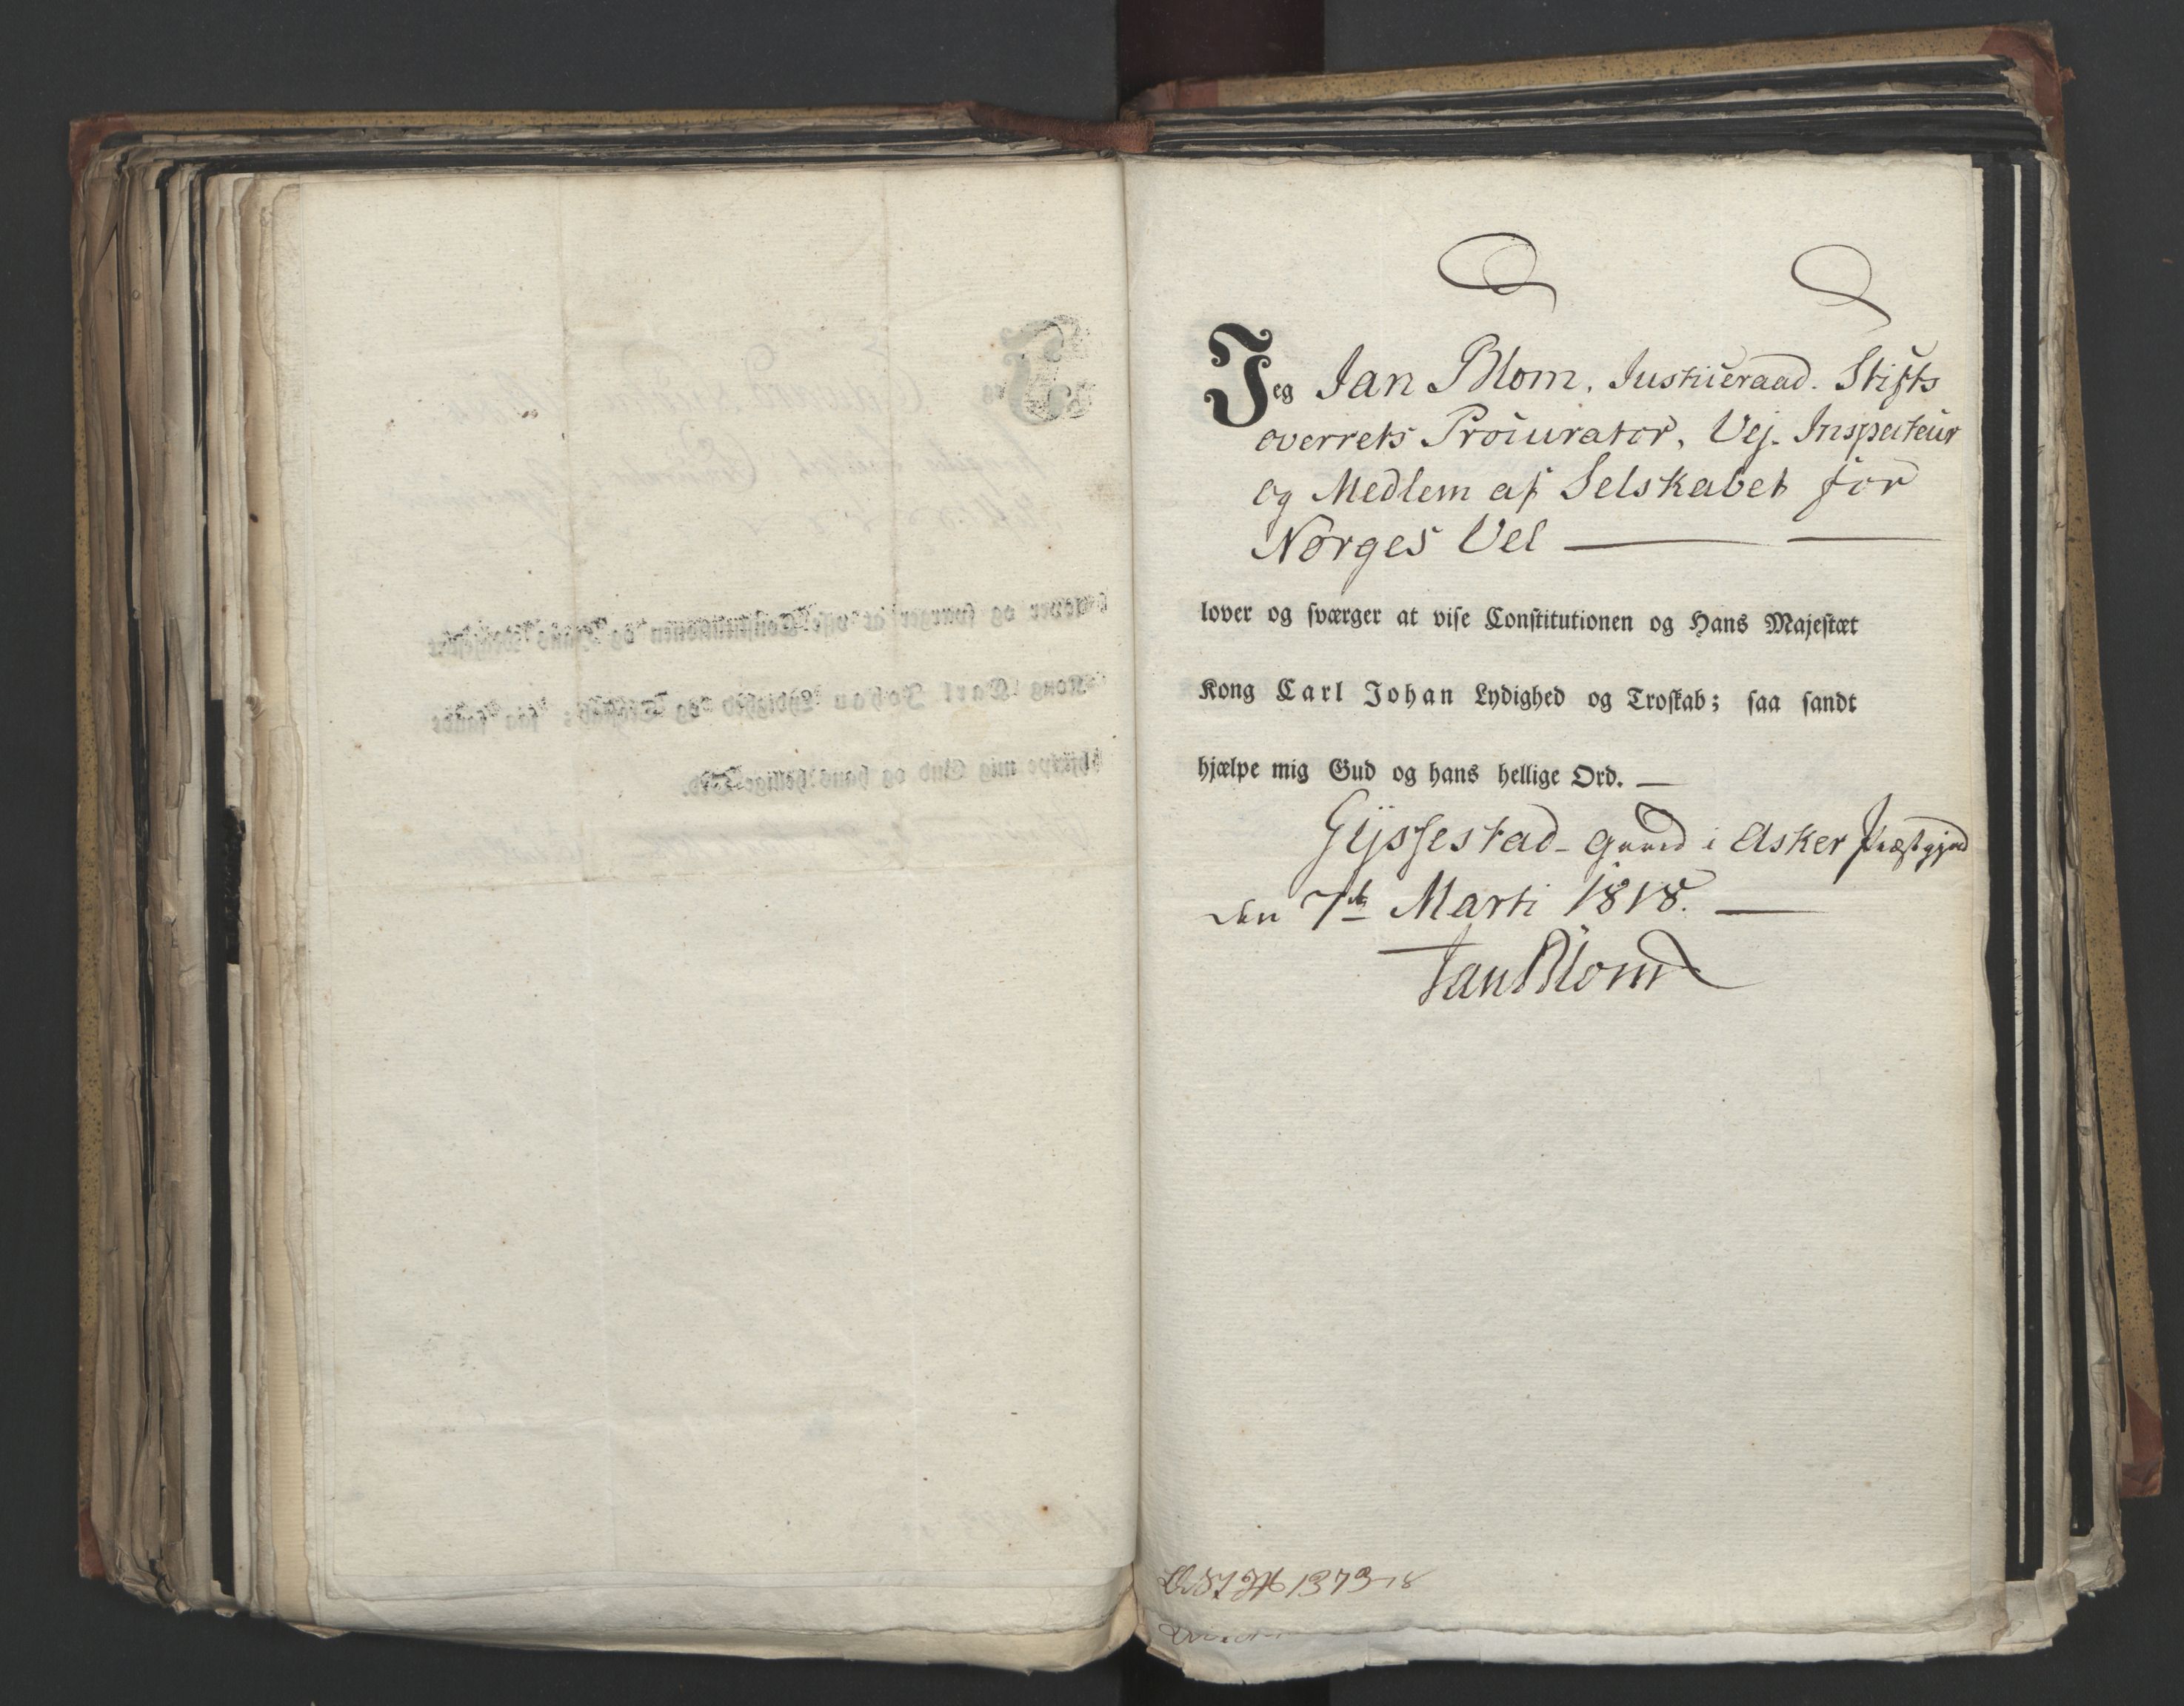 Jeg Jan Blom, Justiceraad. Stifts
overrets Procurator, Vej. Inspecteur
og Medlem af Selskabet for
Norges Vel
lover og sværger at vise Constitutionen og Hans Majestæt
Kong Carl Johan Lydighed og Troskab; saa sandt
hjælpe mig Gud og hans hellige Ord. —
Gyssestad - Gaard i Asker Præstgjeld
den 7de Marti 1818.
Jan Blom
1373-18